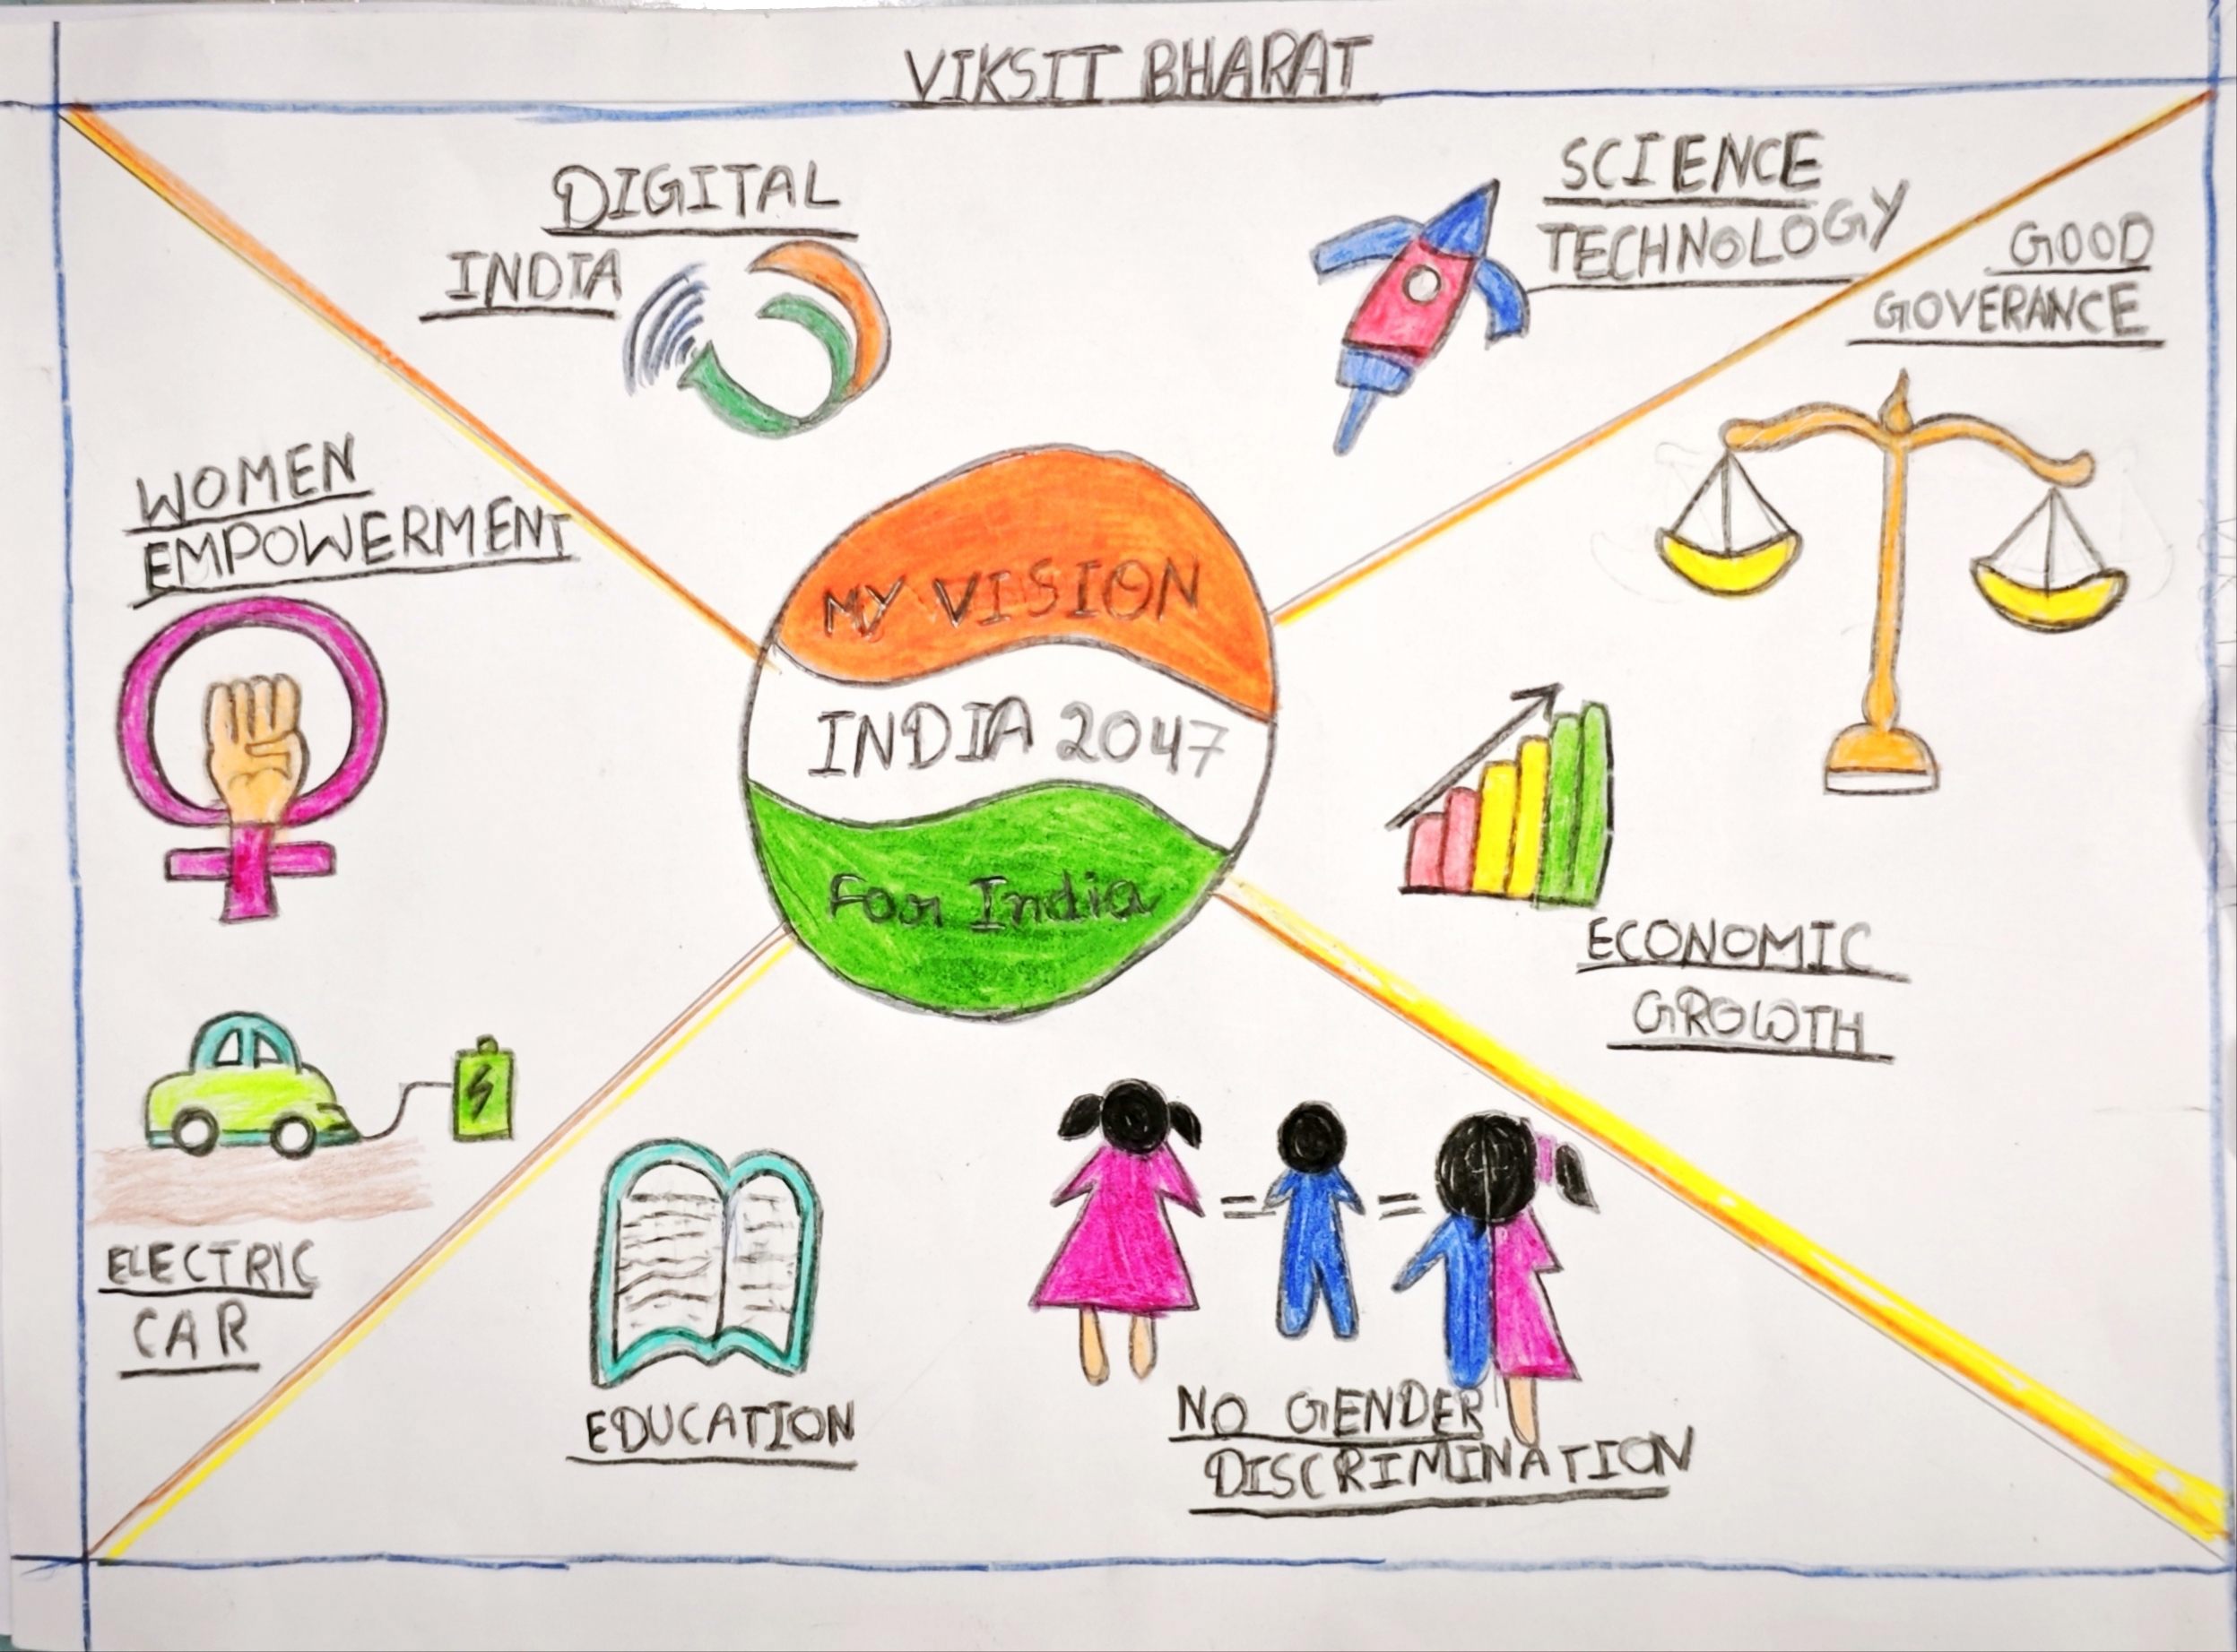 VIKSIT BHARAT
DIGITAL
INDIA
SCIENCE
TECHNOLOGY
GOOD
GOVERANCE
WOMEN
EMPOWERMENT
MY VISION
INDIA 2047
For India
ECONOMIC
GROWTH
ELECTRIC
CAR
EDUCATION
NO GENDER
DISCRIMINATION